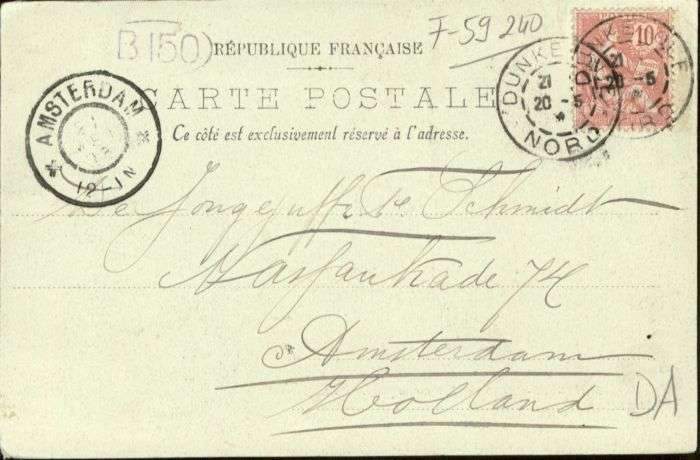 F-59240
B(50)
RÉPUBLIQUE FRANÇAISE
10
DUNKERQUE
21
20 -5
NORD
CARTE POSTALE
AMSTERDAM
12-1N
Ce côté est exclusivement réservé à l'adresse.
de Schmidt
Nassaukade 74
Amsterdam
Holland
DA